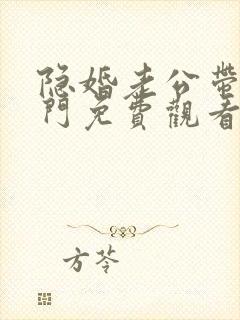 隐婚老公带
门免費觀看
方苓